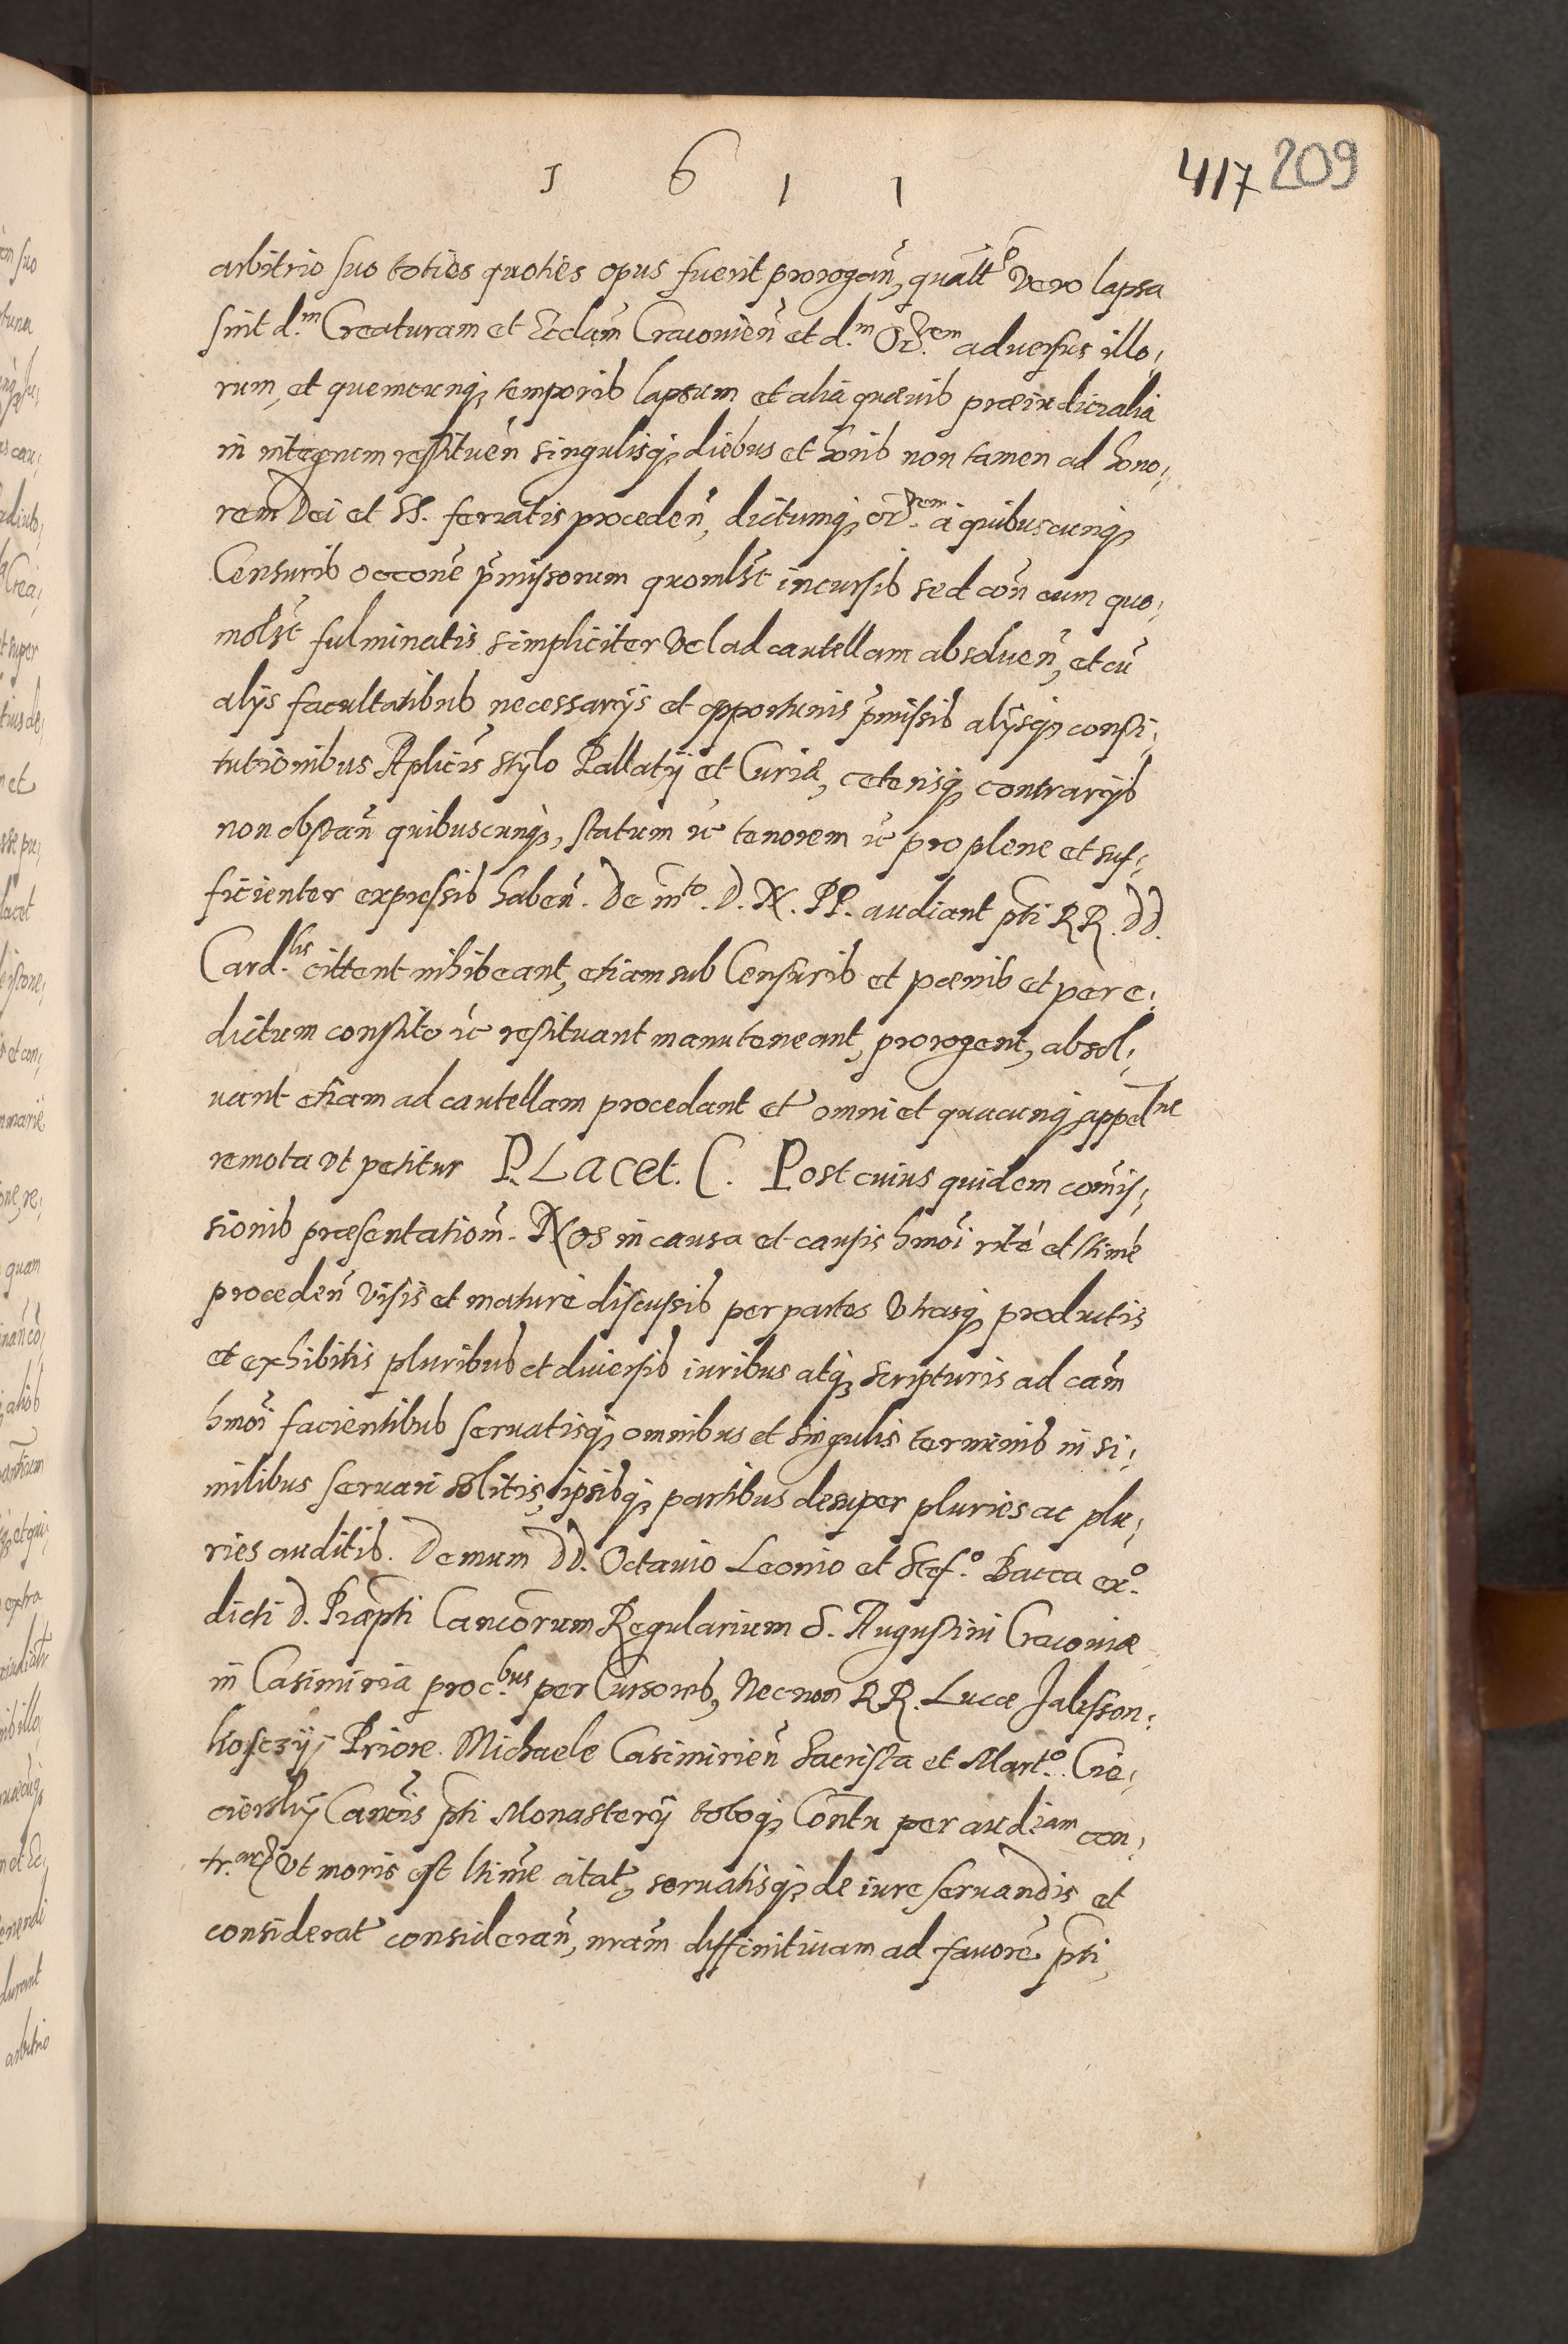 1 6 1 1
417 209
arbitrio suo toties quoties opus fuerit prorogañ, quatt.o vero lapsa
sint d.m Creaturam et Eccłam Cracovieñ et d.m Or.em adversus illo,
rum, et quemcunq; temporis lapsum et alia quævis præiudicialia
in integrum restitueñ singulisq; diebus et horis non tamen ad hono,
rem Dei et SS. feriatis procedeñ, dictumq; or.em à quibuscunq;
Censuris occone p̃missorum quomłst incursis sed coñ eum quo,
molst fulminatis simpliciter vel ad cautellam absolueñ, et cũ
alijs facultatibus necessarijs et opportunis p̃missis alijsq; consti,
tutionibus Aplicis stylo Pallatij et Curiæ, ceterisq; contrarijs
non obstañ quibuscunq;, statum &c tenorem &c pro plene et suf,
ficienter expressis habeñ. De m̃to. D. N. PP. audiant p̃ti RR. DD.
Card.lis cittent inhibeant, etiam sub Censuris et pœnis et per e,
dictum constito &c restituant manuteneant, prorogent, absol,
vant etiam ad cautellam procedant et omni et quacunq; appelne
remota vt petitur PLacet. C. Post cuius quidem com̃is,
sionis præsentatioñ. Nos in causa et causis hmõi ritè et ltimè
procedeñ visis et maturè discussis per partes vtrasq; productis
et exhibitis pluribus et diversis iuribus atq; scripturis ad cãm
hmõi facientibus servatisq; omnibus et singulis terminis in si,
milibus servari solitis, ipsisq; partibus desuper pluries ac plu,
ries auditis. Demum DD. Octavio Leonio et Stef.o Bacca ex.o
dicti D. Præpti Canc̃orum Regularium S. Augustini Cracoviæ
in Casimiria proc.bus per Cursores, Necnon RR. Lucæ Jalisson,
kosczij Priore. Michaele Casimirieñ Sacrista et Mart.o Cie,
cierskij Canc̃is p̃ti Monasterij totoq; Con̄tu per aud.iam con,
tr.arū vt moris est ltimè citat, servatisq; de iure servandis et
considerat considerañ, nrãm diffinitivam ad favorẽ p̃ti